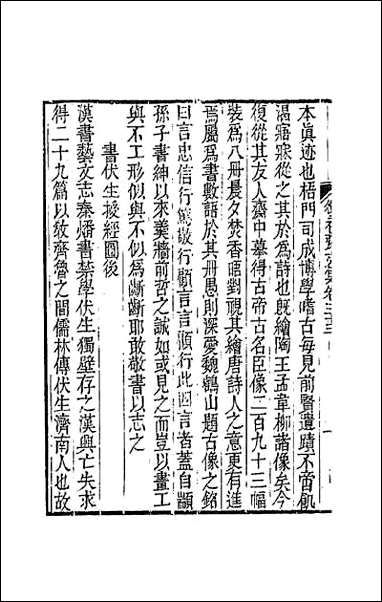 本真迹也梧門司成博學嗜古每見前賢遺蹟不啻飢
渴寤寐從之其於為詩也既繪陶王孟韋柳諸像矣今
復從其友人齋中摹得古帝古名臣像二百九十三幅
裝為八册晨夕焚香晤對視其繪唐詩人之意更有進
焉屬為書數語於其册愚則深愛魏鶴山題古像之銘
曰言忠信行篤敬行顧言言顧行此四言者蓋自顓
孫子書紳以來羹牆前哲之誠如或見之而豈以畫工
與不工形似與不似為齗齗耶敢敬書以志之
書伏生授經圖後
漢書藝文志秦燔書禁學伏生獨壁存之漢興亡失求
得二十九篇以敎齊魯之間儒林傳伏生濟南人也故